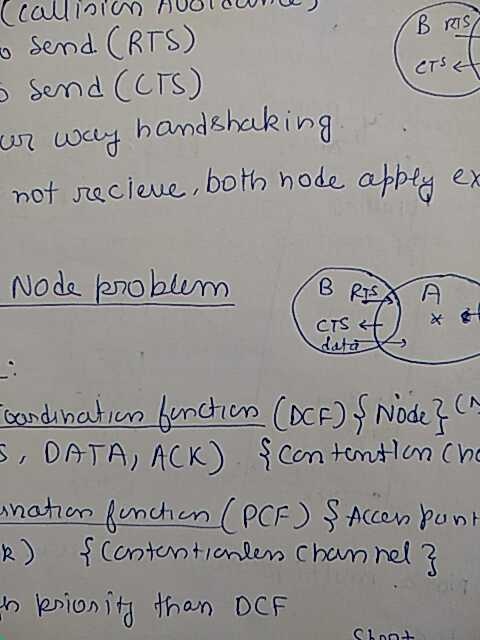 (Collision Avoidance)
B RTS
o Send (RTS)
CTS
o Send (CTS)
ur way handshaking
not recieve, both node apply ex
Node problem
B RTS A
CTS
data
oordination function (DCF) {Node} (N
S, DATA, ACK) {Contention Cha
ination function (PCF) {Access Point
k) {Contentionless channel}
gh priority than DCF
Short